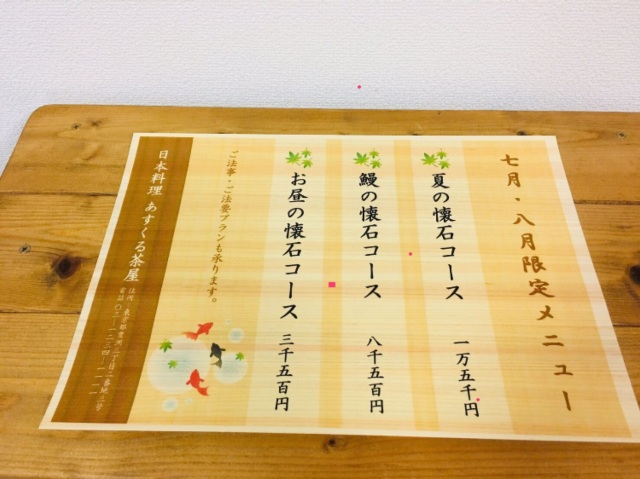 七月・八月限定メニュー
夏の懐石コース 一万五千円
鰻の懐石コース 八千五百円
お昼の懐石コース 三千五百円
ご法事・ご法要プランも承ります。
日本料理 あすくる茶屋